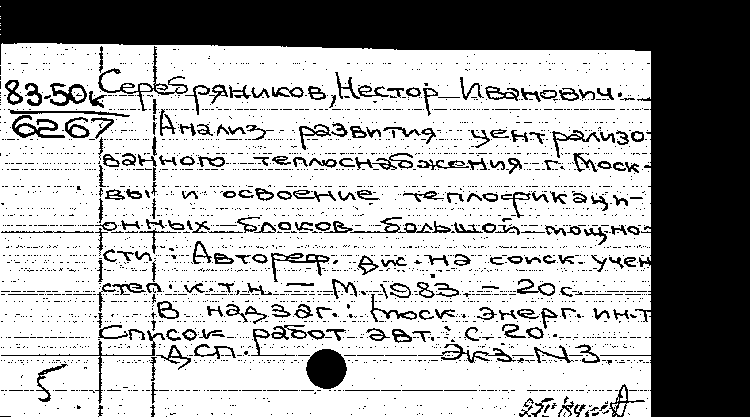 83-50к Серебряников, Нестор Иванович.
6267 Анализ развития централизо-
ванного теплоснабжения г. Моск-
вы и освоение теплофикаци-
онных блоков большой мощно-
сти : Автореф. дис. на соиск. учен
степ. к.т.н. — М. 1983. — 20с.
В надзаг.: Моск. энерг. ин.т
Список работ авт.: с. 20.
ДСП. Экз. N3.
5